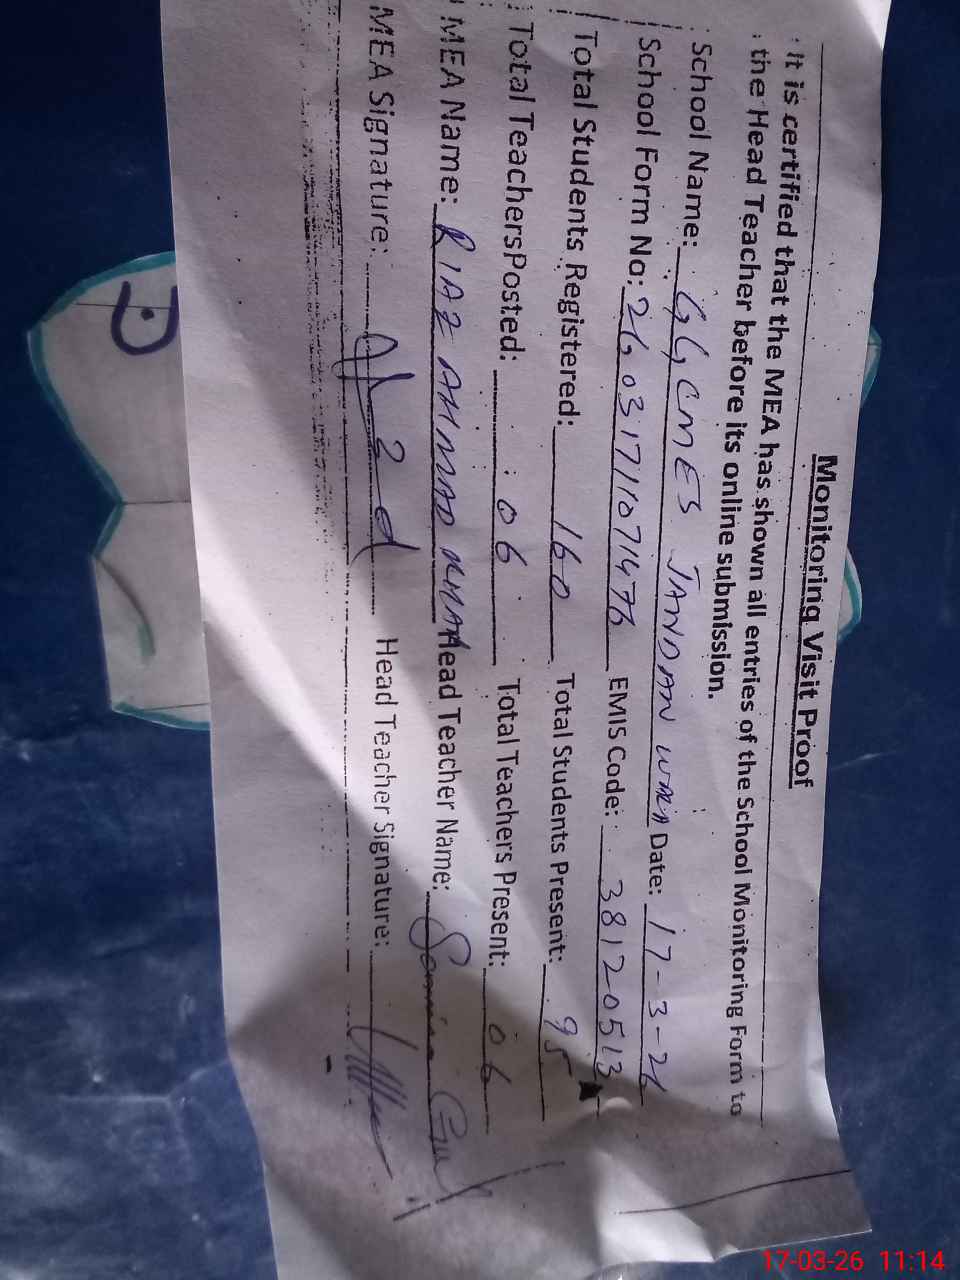 Monitoring Visit Proof
It is certified that the MEA has shown all entries of the School Monitoring Form to
the Head Teacher before its online submission.
School Name: GGCMES JANDAN WALA Date: 17-3-26
School Form No: 26031711071476 EMIS Code: 38120513
Total Students Registered: 160 Total Students Present: 95
Total TeachersPosted: 06 Total Teachers Present: 06
MEA Name: RIAZ AHMAD KHAN Head Teacher Name: Gul
MEA Signature: Head Teacher Signature:
17-03-26 11:14